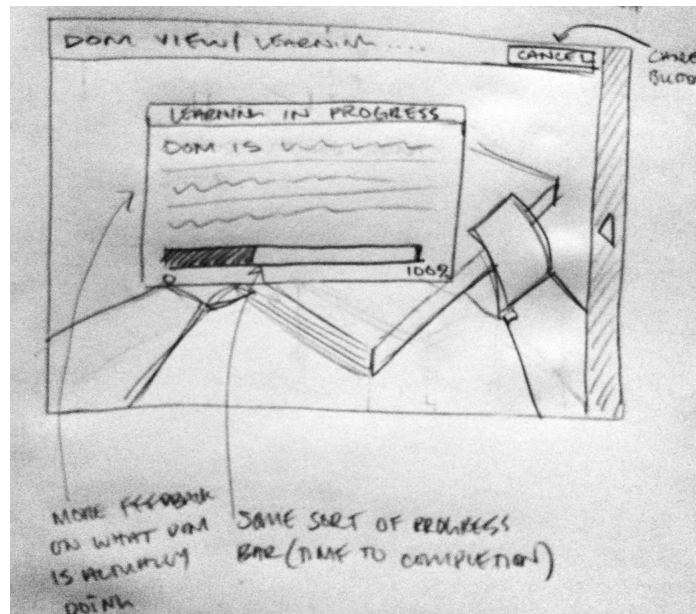 DOM VIEW / LEARNING ....
CANCEL
BUTTON
LEARNING IN PROGRESS
DOM IS
0
100%
MORE FEEDBACK
ON WHAT DOM
IS ACTUALLY
DOING
SOME SORT OF PROGRESS
BAR (TIME TO COMPLETION)